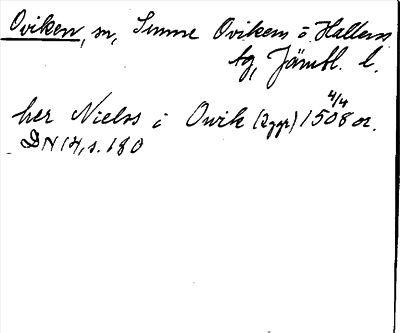 Oviken, sn, Sunne Ovikens o Hallens
tg, Jämtl. l.
her Nielss i Owik (2 ggr) 4/4 1508 or.
DN 14, s. 180